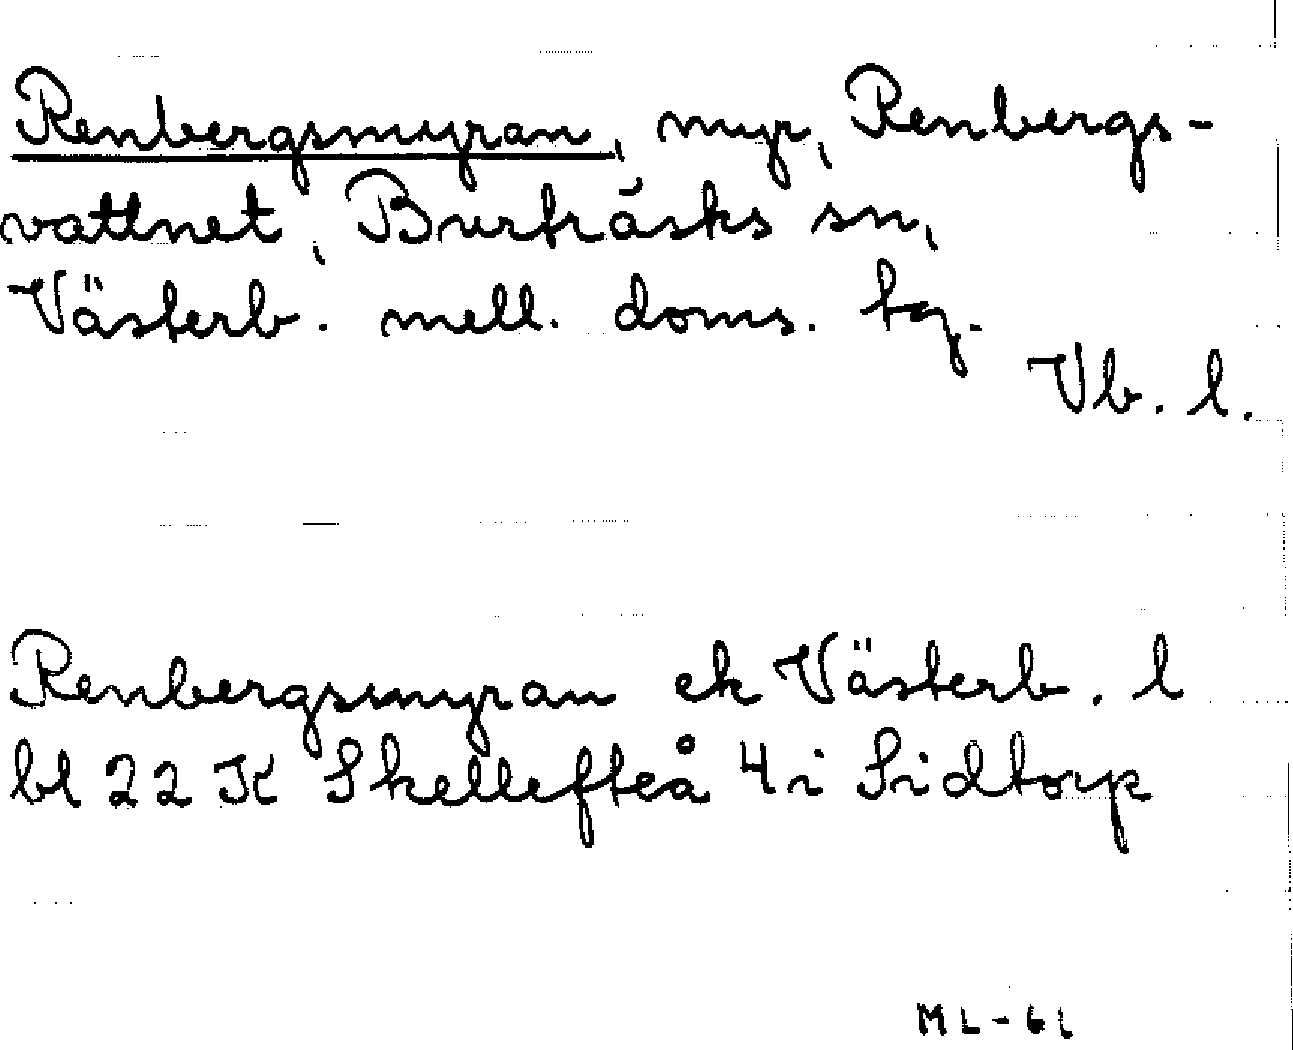 Renbergsmyran, myr, Renbergs-
vattnet, Burträsks sn,
Västerb. mell. doms. tg.
Vb. l.
Renbergsmyran ek Västerb. l
bl 22 K Skellefteå 4 i Sidtorp
ML-61